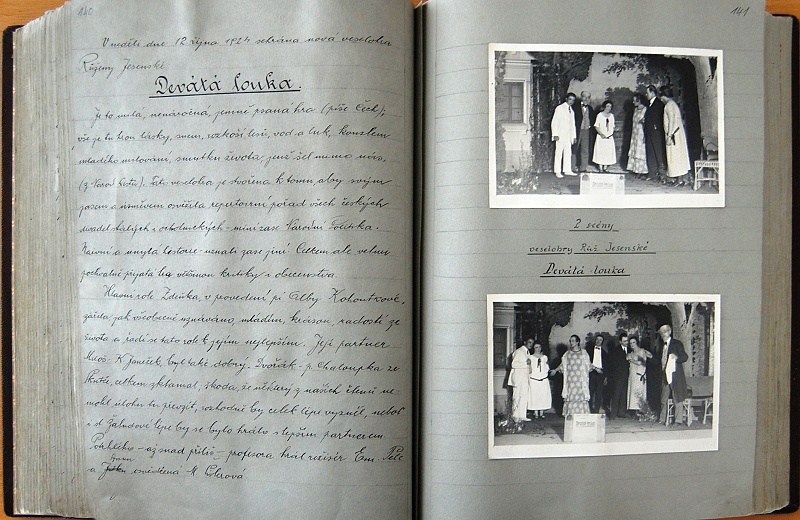 140
V neděli dne 12 října 1924 sehrána nová veselohra
Růženy Jesenské
Devátá louka.
Je to milá, nenáročná, jemně psaná hra (píše Čech);
vše je tu tron lásky, snem, rozkoší lesů, vod a luk, kouzlem
mladého milování, smutku života, jenž šel mimo nás.
(z Národ. Listů). Tato veselohra je stvořena k tomu, aby svým
jasem a úsměvem osvěžila repertoirní pořad všech českých
divadel stálých i ochotnických - míní zase Národní Politika.
Naivní a umylá historie - uznali zase jiní. Celkem ale velmi
pochvalně přijata hra většinou kritiky i obecenstva.
Hlavní role Zdeňka, v provedení pí Alby Kohoutkové,
zářila, jak všeobecně uznáváno, mládím, krásou, radostí ze
života a řadí se tato role k jejím nejlepším. Její partner
Miloš - K. Janeček byl také dobrý. Dvořák - p. Chaloupka ze
Skutče, celkem zklamal, škoda, že některý z našich členů ne-
mohl úlohu tu převzít, rozhodně by celek lépe vyzněl, neboť
i sl. Žaludové lépe by se bylo hrálo s lepším partnerem.
Potrhlého - až snad příliš - profesora hrál režisér Em. Pelc
a osvědčená M.
141
2 scény
veselohry Růž. Jesenské
Devátá louka